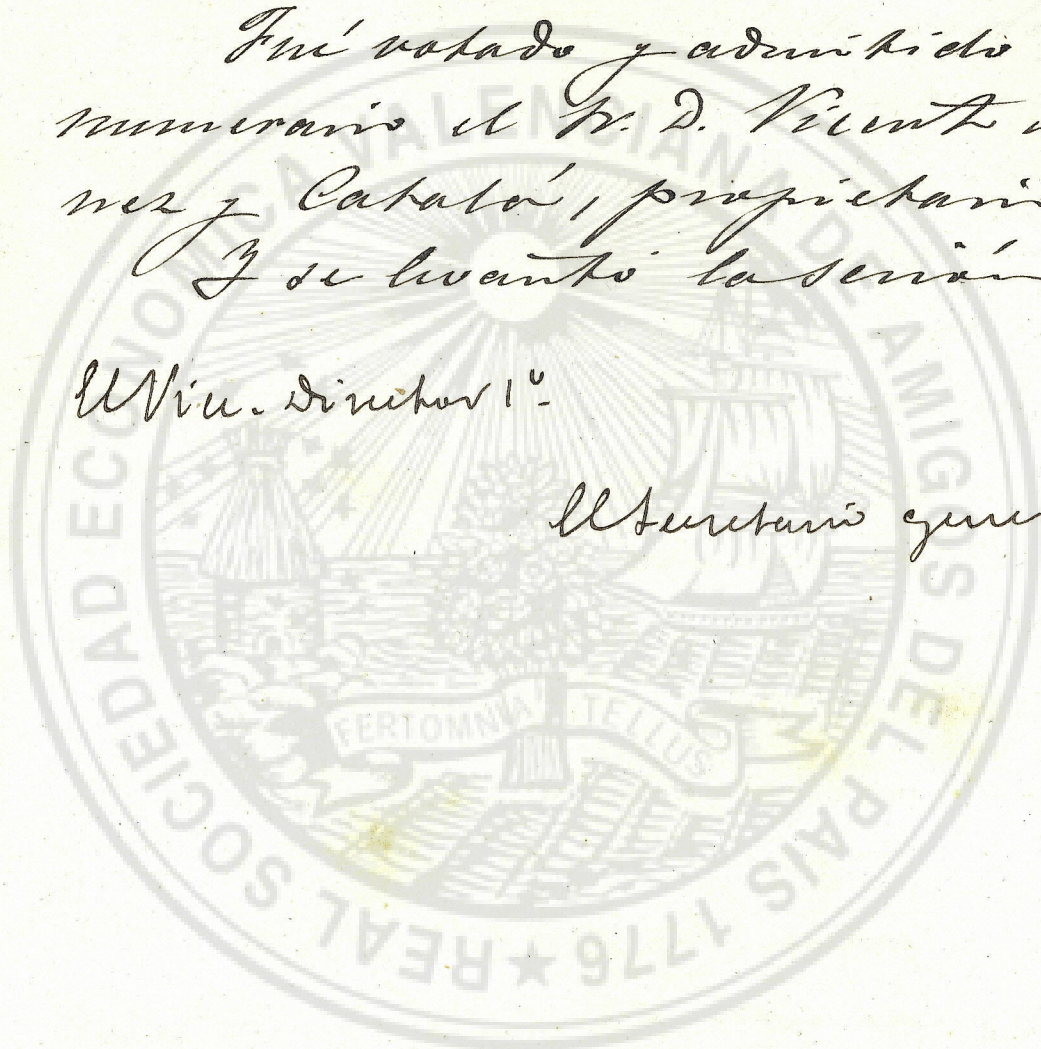 Fué votado y admitido
numerario el Sr. D. Vicente
nez y Catalá, propietario
Y se levantó la sesión
El Vice-Director 1º
El Secretario gene
REAL SOCIEDAD ECONOMICA VALENCIANA DE AMIGOS DEL PAIS 1776 ★
FERT OMNIA TELLUS